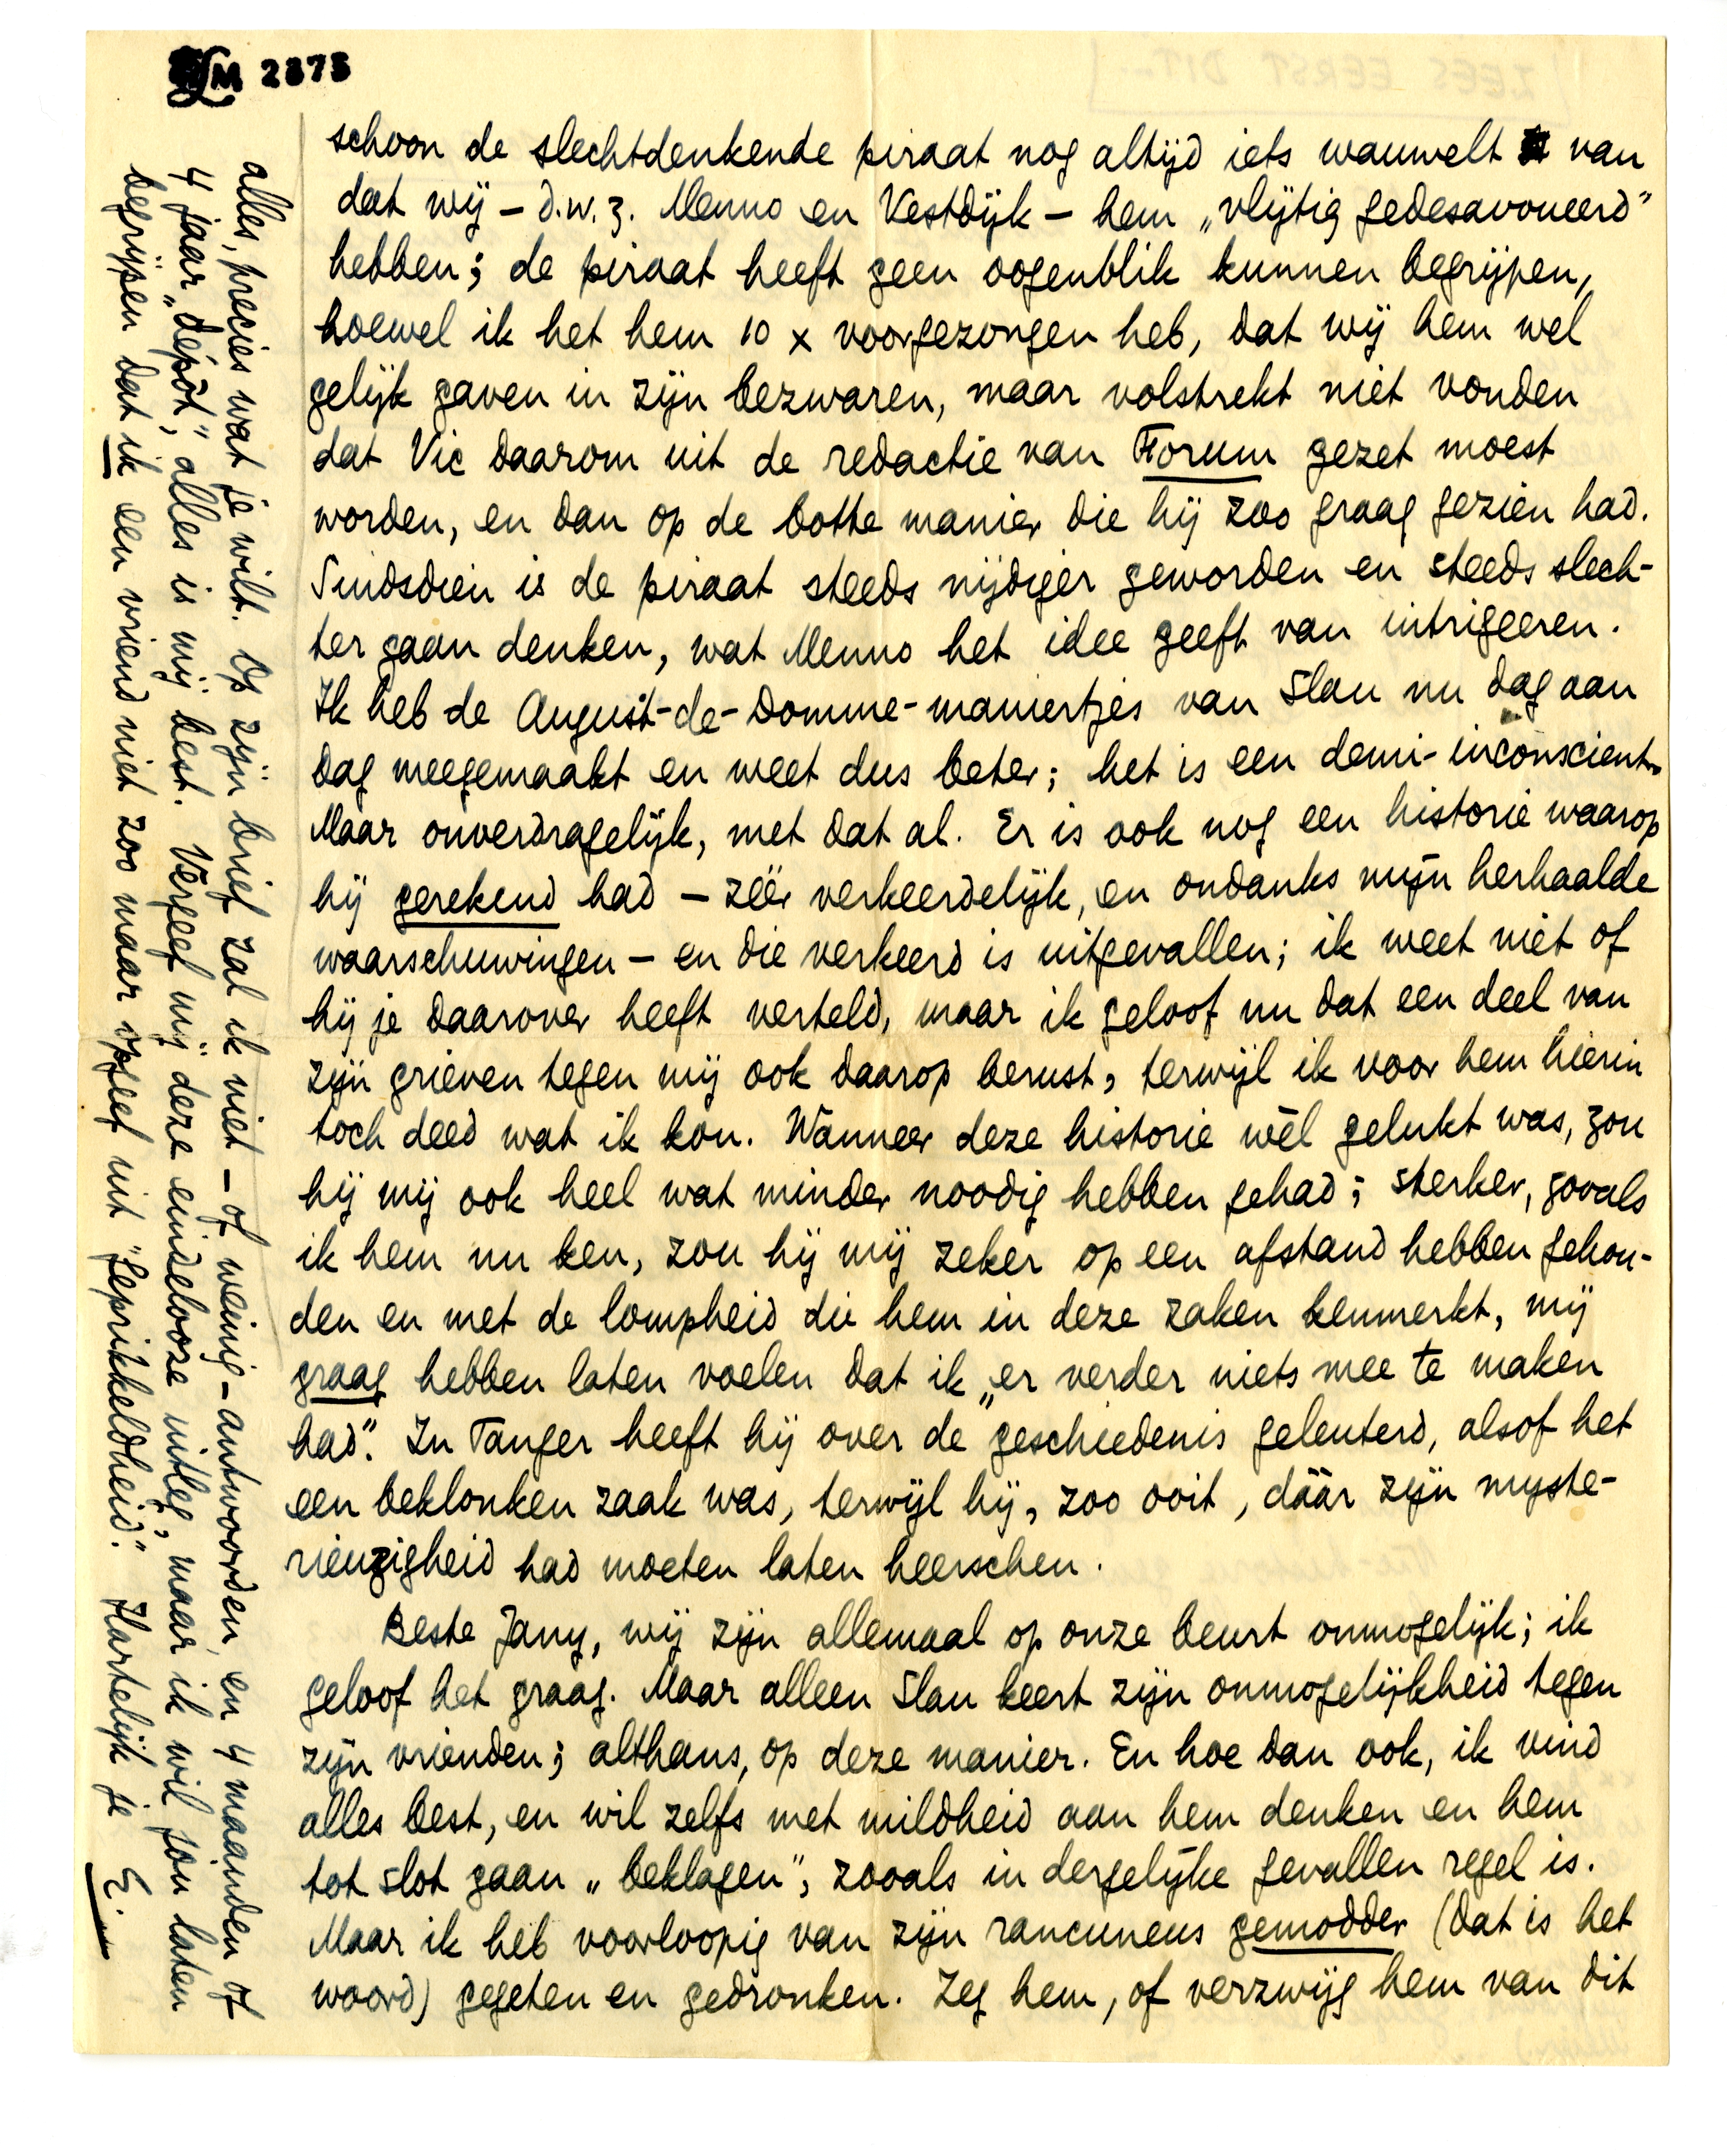 LM 2873
schoon de slechtdenkende piraat nog altijd iets wauwelt van
dat wij – d.w.z. Menno en Vestdijk – hem „vlijtig gedesavoueerd”
hebben; de piraat heeft geen oogenblik kunnen begrijpen,
hoewel ik het hem 10 x voorgezongen heb, dat wij hem wel
gelijk gaven in zijn bezwaren, maar volstrekt niet vonden
dat Vic daarom uit de redactie van Forum gezet moest
worden, en dan op de botte manier die hij zoo graag gezien had.
Sindsdien is de piraat steeds nijdiger geworden en steeds slech-
ter gaan denken, wat Menno het idee geeft van intrigeeren.
Ik heb de August-de-Domme-maniertjes van Slau nu dag aan
dag meegemaakt en weet dus beter; het is een demi-inconscient.
Maar onverdragelijk, met dat al. Er is ook nog een historie waarop
hij gerekend had – zéér verkeerdelijk, en ondanks mijn herhaalde
waarschuwingen – en die verkeerd is uitgevallen; ik weet niet of
hij je daarover heeft verteld, maar ik geloof nu dat een deel van
zijn grieven tegen mij ook daarop berust, terwijl ik voor hem hierin
toch deed wat ik kon. Wanneer deze historie wèl gelukt was, zou
hij mij ook heel wat minder noodig hebben gehad; sterker, zooals
ik hem nu ken, zou hij mij zeker op een afstand hebben gehou-
den en met de lompheid die hem in deze zaken kenmerkt, mij
graag hebben laten voelen dat ik „er verder niets mee te maken
had”. In Tanger heeft hij over de geschiedenis geleuterd, alsof het
een beklonken zaak was, terwijl hij, zoo ooit, dáár zijn myste-
rieuzigheid had moeten laten heerschen.
Beste Jany, wij zijn allemaal op onze beurt onmogelijk; ik
geloof het graag. Maar alleen Slau keert zijn onmogelijkheid tegen
zijn vrienden; althans, op deze manier. En hoe dan ook, ik vind
alles best, en wil zelfs met mildheid aan hem denken en hem
tot slot gaan „beklagen”, zooals in dergelijke gevallen regel is.
Maar ik heb voorloopig van zijn rancuneus gemodder (dat is het
woord) gegeten en gedronken. Zeg hem, of verzwijg hem van dit
alles, precies wat je wilt. Op zijn brief zal ik niet – of weinig – antwoorden, en 4 maanden of
4 jaar „dépôt”, alles is mij best. Vergeef mij deze eindelooze uitleg, maar ik wil jou laten
begrijpen dat ik een vriend niet zoo maar opgeef uit „geprikkeldheid”. Hartelijk je E.